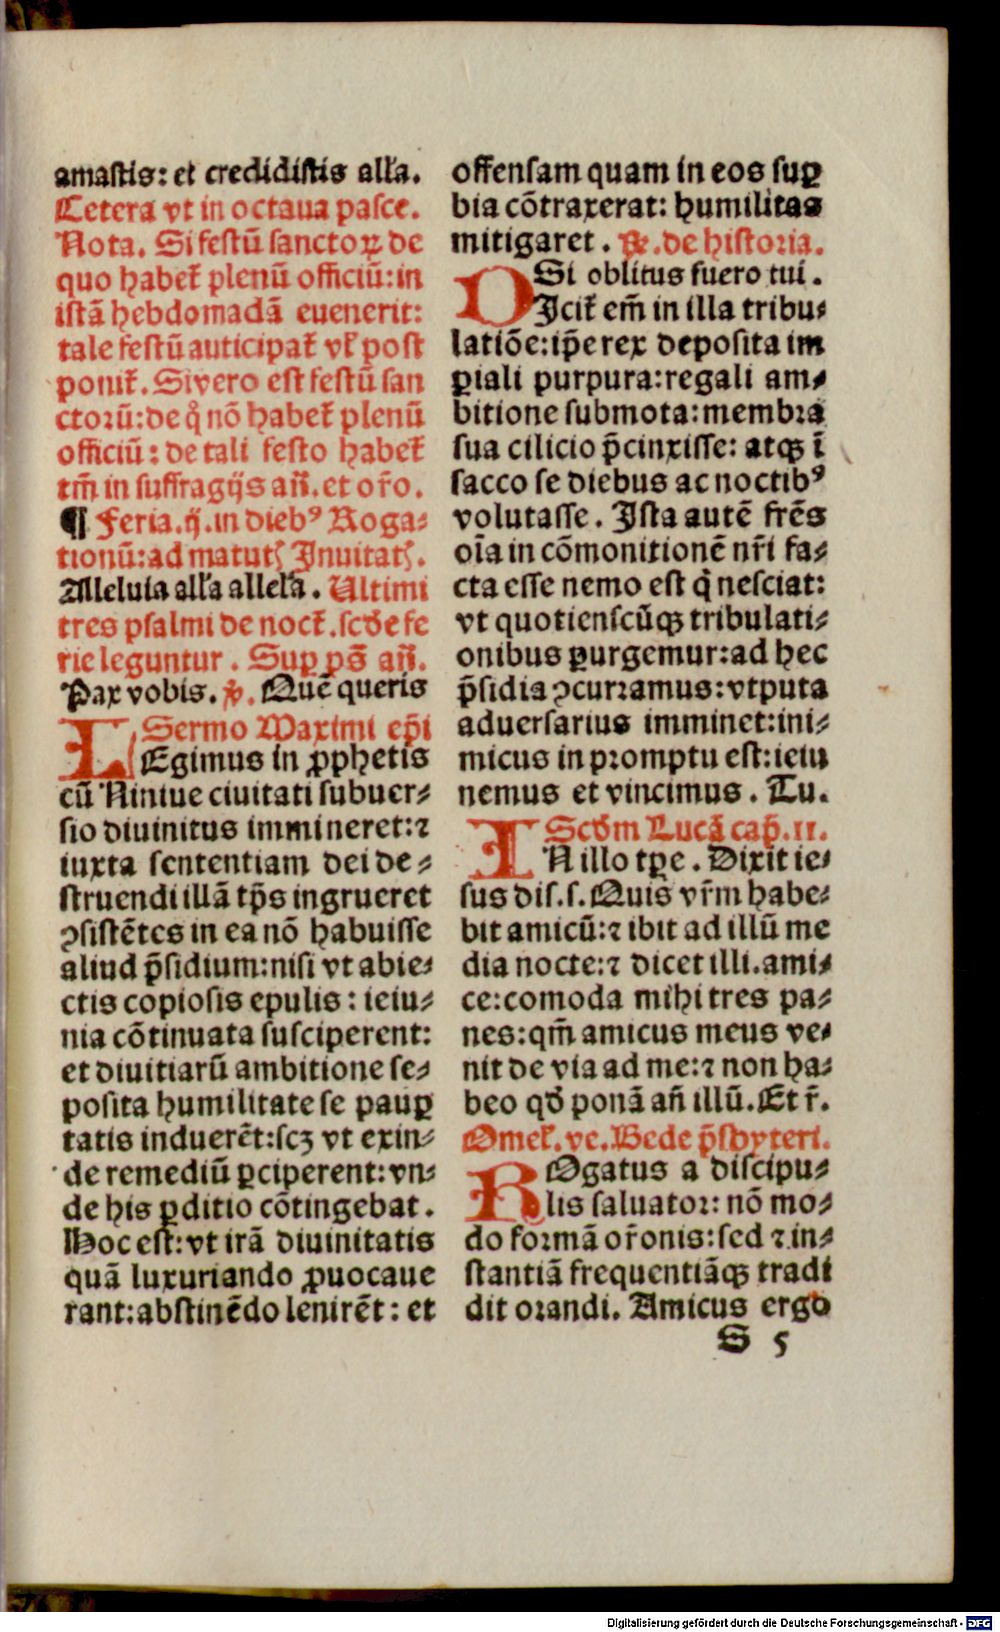 amastis: et credidistis alľa.
Cetera vt in octaua pasce.
Nota. Si festū sanctoꝝ de
quo habet̃ plenū officiū: in
istā hebdomadā euenerit:
tale festū auticipat̃ vľ post
ponit̃. Si vero est festū san
ctorū: de q̊ nō habet̃ plenū
officiū: de tali festo habet̃
tm̄ in suffragijs añ. et or̄o.
¶ Feria.ij.in diebꝰ Roga⸗
tionū: ad matutꝭ Inuitatꝭ.
Alleluia alľa allela. Ultimi
tres psalmi de noct̃. scd̓e fe
rie leguntur. Suꝑ ps̄ añ.
Pax vobis. ℣. Quē queris
Sermo Maximi ep̄i
LEgimus in ꝓphetis
cū Niniue ciuitati subuer⸗
sio diuinitus immineret: ⁊
iuxta sententiam dei de⸗
struendi illā tp̄s ingrueret
ꝯsistētes in ea nō habuisse
aliud p̄sidium: nisi vt abie⸗
ctis copiosis epulis: ieiu⸗
nia cōtinuata susciperent:
et diuitiarū ambitione se⸗
posita humilitate se pauꝑ
tatis induerēt: scꝫ vt exin⸗
de remediū ꝑciperent: vn⸗
de his ꝑditio cōtingebat.
Hoc est: vt irā diuinitatis
quā luxuriando ꝓuocaue
rant: abstinēdo lenirēt: et
offensam quam in eos suꝑ
bia cōtraxerat: humilitas
mitigaret. ℟. de historia.
Si oblitus fuero tui.
DIcit̃ em̄ in illa tribu⸗
latiōe: ip̄e rex deposita im
ꝑiali purpura: regali am⸗
bitione submota: membra
sua cilicio p̄cinxisse: atqꝫ ī
sacco se diebus ac noctibꝰ
volutasse. Ista autē frēs
oīa in cōmonitionē nr̄i fa⸗
cta esse nemo est q̄ nesciat:
vt quotienscūqꝫ tribulati⸗
onibus ꝑurgemur: ad hec
p̄sidia ꝯcurramus: vtputa
aduersarius imminet: ini⸗
micus in promptu est: ieiu
nemus et vincimus. Tu.
Scd̓m Lucā cap̄.11.
IN illo tꝑe. Dixit ie⸗
sus dis.s. Quis vr̄m habe⸗
bit amicū: ⁊ ibit ad illū me
dia nocte: ⁊ dicet illi. ami⸗
ce: comoda mihi tres pa⸗
nes: qm̄ amicus meus ve⸗
nit de via ad me: ⁊ non ha⸗
beo qd̓ ponā añ illū. Et r̄.
Omeľ. ve. Bede p̄sbyteri.
ROgatus a discipu⸗
lis saluator: nō mo⸗
do formā or̄onis: sed ⁊ in⸗
stantiā frequentiāqꝫ tradi
dit orandi. Amicus ergo
S 5
Digitalisierung gefördert durch die Deutsche Forschungsgemeinschaft - DFG